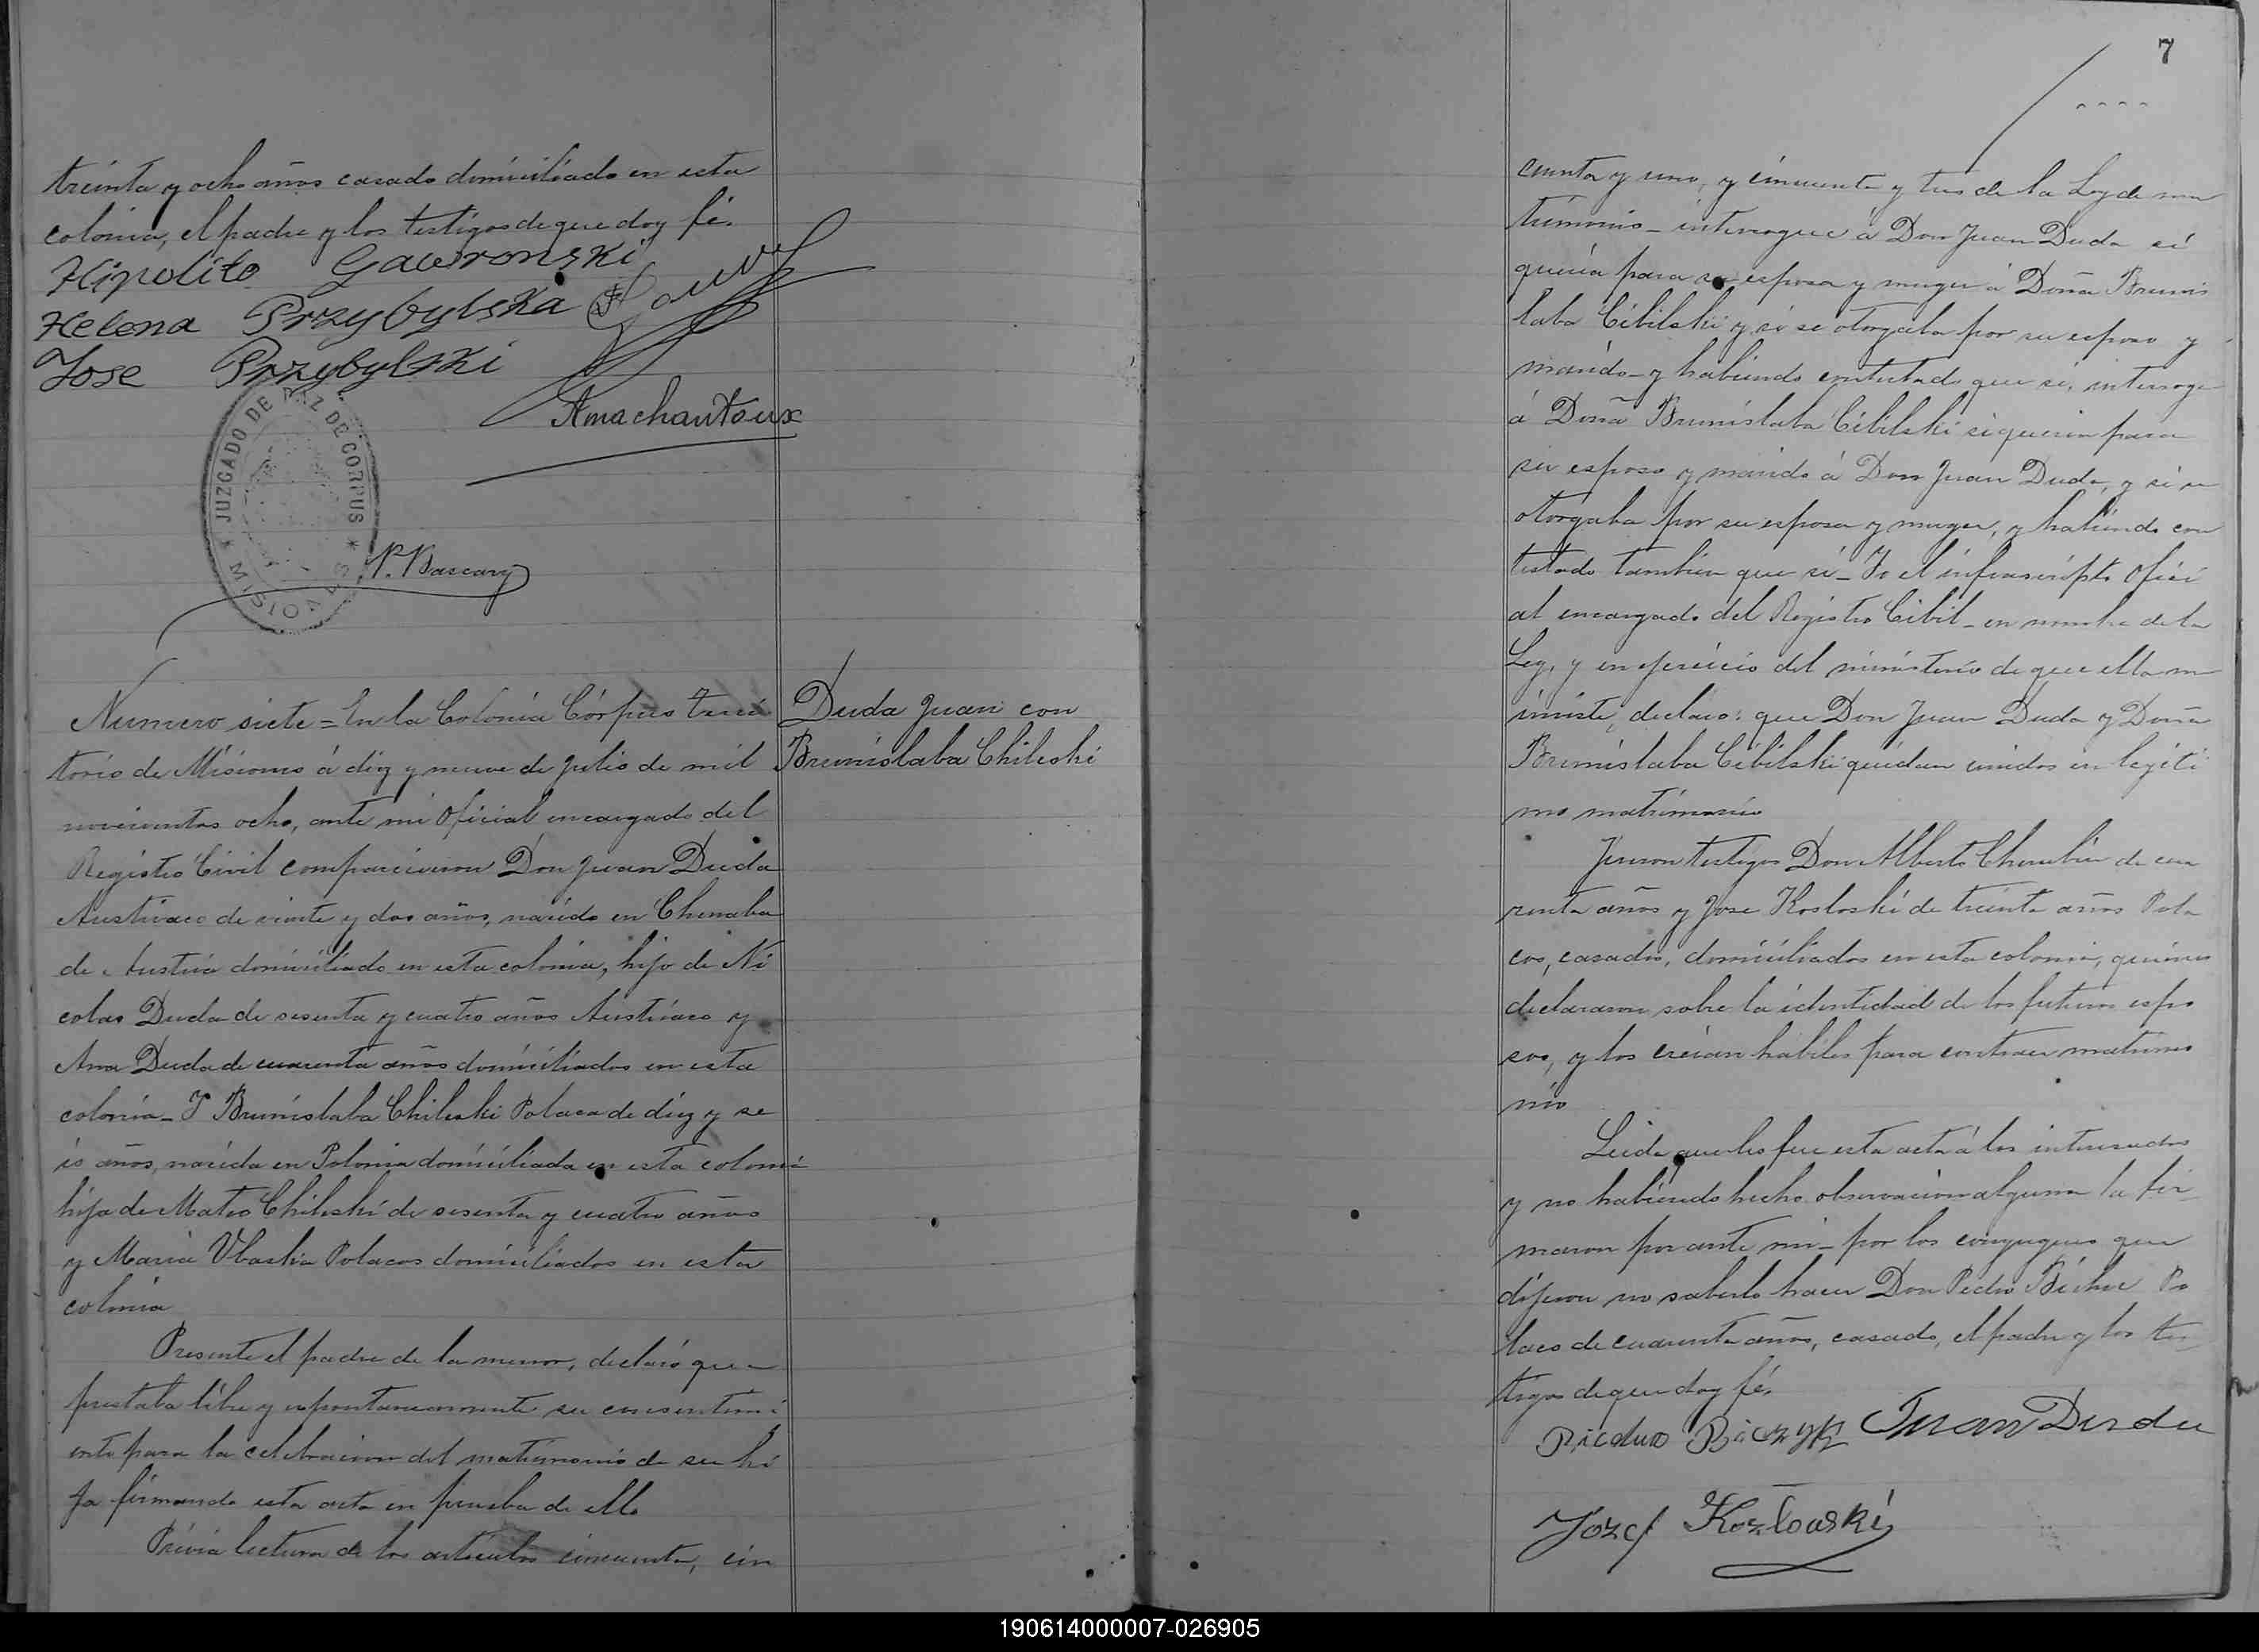 treinta y ocho años casado domiciliado en esta
colonia, el padre y los testigos de que doy fé.
Hipolito Gawronski
Helena Przybylska
Jose Przybylski
Amachantoux
JUZGADO DE PAZ DE CORPUS
* MISIONES *
P. Bascary
Numero siete = En la Colonia Córpus terri
torio de Misiones á diez y nueve de Julio de mil
novecientos ocho, ante mi Oficial encargado del
Registro Civil comparecieron Don Juan Duda
Austriaco de veinte y dos años, nacido en
de Austria domiciliado en esta colonia, hijo de Ni
colas Duda de sesenta y cuatro años Austriaco y
Ana Duda de cuarenta años domiciliados en esta
colonia_ Y Brunislaba Chileski Polaca de diez y se
is años, nacida en Polonia domiciliada en esta coloni
hija de Mateo Chileski de sesenta y cuatro años
y Maria Ubaska Polacos domiciliados en esta
colonia
Presente el padre de la menor, declaró que
prestaba libre y espontaneamente su consentimi
ento para la celebracion del matrimonio de su hi
ja firmando esta acta en prueba de ello
Prévia lectura de los articulos cincuenta, cin
Duda Juan con
Brunislaba Chileski
7
cuenta y uno, y cincuenta y tres de la Ley de ma
trimonio_ interrogue á Don Juan Duda si
queria para su esposa y muger á Doña Brunis
laba Cibilski y si se otorgaba por su esposo y
marido_ y habiendo contestado que si, interrogue
á Doña Brunislaba Cibilski si queria para
su esposo y marido á Don Juan Duda, y si se
otorgaba por su esposa y muger, y habiendo con
testado tambien que si_ Yo el infrascripto Ofici
al encargado del Registro Cibil_ en nombre de la
Ley, y en ejercicio del ministerio de que ella me
inviste, declaro: que Don Juan Duda y Doña
Brunislaba Cibilski quedan unidos en legiti
mo matrimonio
Fueron testigos Don Alberto Cherubin de cua
renta años y Jose Kosloski de treinta años Pola
cos, casados, domiciliados en esta colonia, quienes
declararon sobre la identidad de los futuros espo
sos, y los creian habiles para contraer matrimo
nio
Leida que les fue esta acta á los interesados
y no habiendo hecho observacion alguna la fir
maron por ante mi_ por los conyugues que
dijeron no saberlo hacer Don Pedro Po
laco de cuarenta años, casado, el padre y los tes
tigos de que doy fé.
Juan Duda
Jozef Kozłowski
190614000007-026905